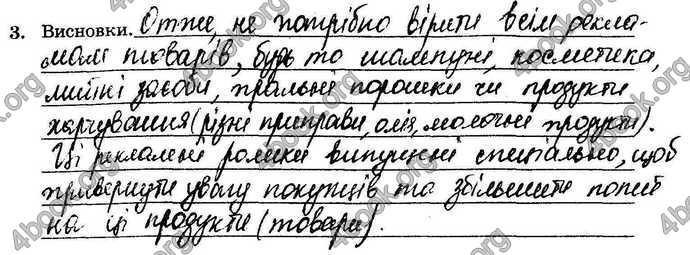 3. Висновки. Отже, не потрібно вірити всім рекла-
мам товарів, будь то шампуні, косметика,
миючі засоби, пральні порошки чи продукти
харчування (різні приправи, олія, молочні продукти).
Ці рекламні ролики випущені спеціально, щоб
привернути увагу покупців та збільшити попит
на ці продукти (товари).
4book.org